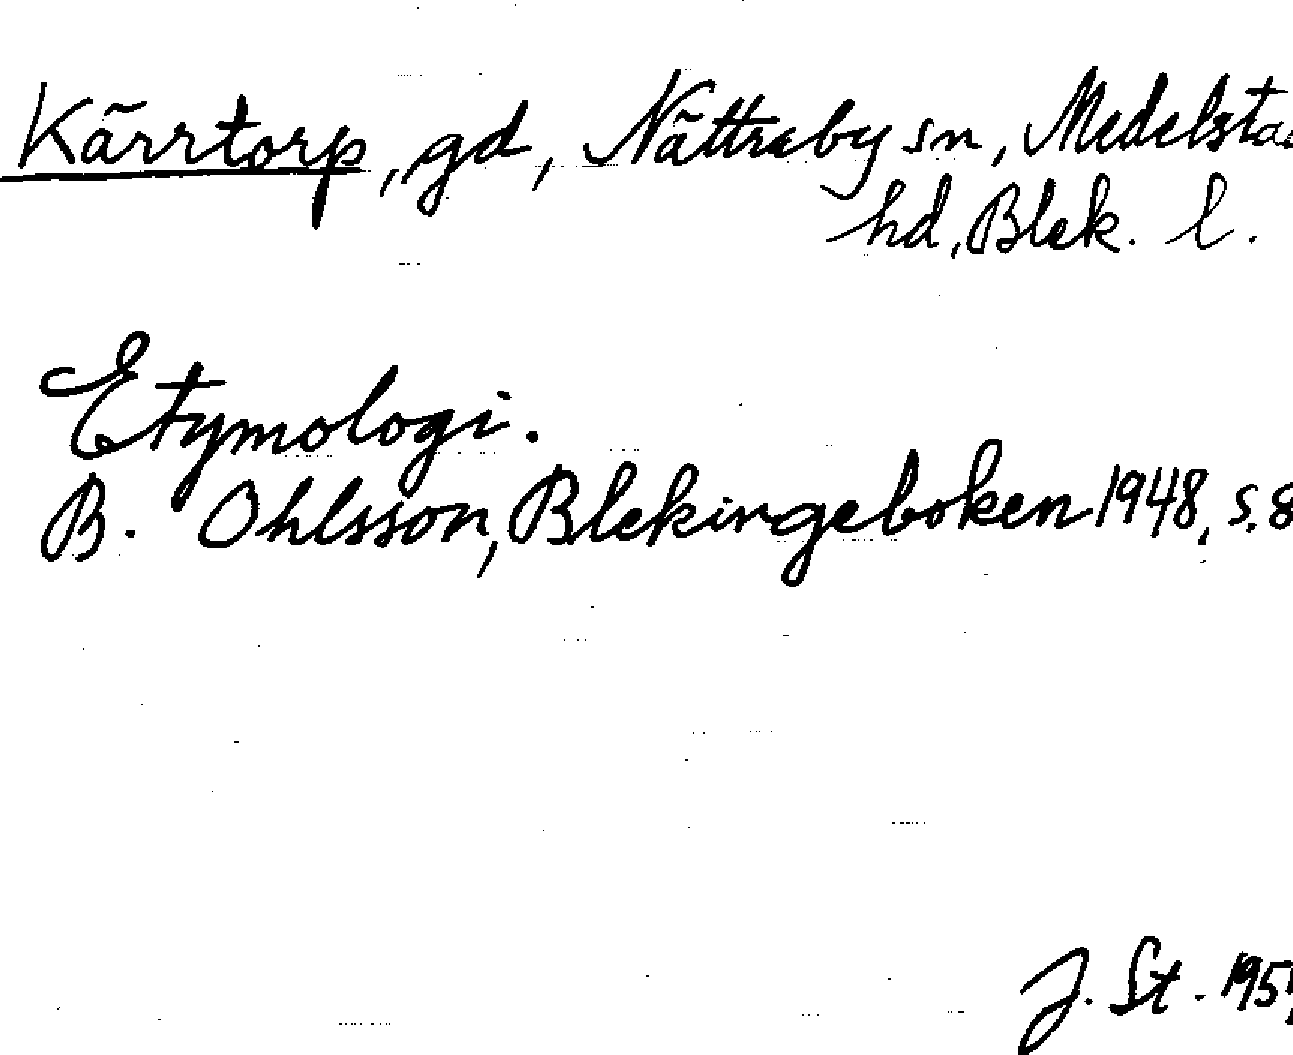 Kärrtorp, gd, Nättraby sn, Medelsta
hd, Blek. l.
Etymologi.
B. Ohlsson, Blekingeboken 1948, s. 8
J. St. 195